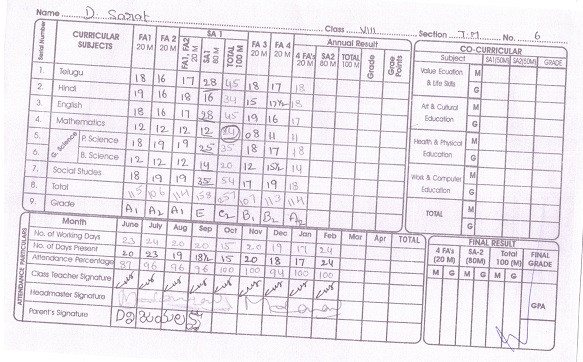 Name D. Sarat Class VIII Section T.M No. 6
Serial Number CURRICULAR SUBJECTS FA1 20 M FA 2 20 M FA1, FA2 20 M SA 1 SA1 80 M TOTAL 100 M FA 3 20 M FA 4 20 M Annual Result 4 FA's 20 M SA2 80 M TOTAL 100 M Grade Grae Points
1. Telugu 18 16 17 28 45 18 17 18
2. Hindi 19 16 18 16 34 15 17½ 18
3. English 18 16 17 28 45 19 16 17
4. Mathematics 12 12 12 12 08 11 11
Science
5. P. Science 18 19 19 25 35 18 17 18
6. B. Science 12 12 12 14 20 12 15½ 14
7. Social Studies 18 19 19 35 54 17 19 18
8. Total 115 106 114 158 257 107 113 114
9. Grade A1 A2 A1 E C2 B1 B2 A2
CO-CURRICULAR
Subject SA1(50M) SA2(50M)
Value Ecuation & Life Skills M G
Art & Cultural Education M G
Health & Physical Education M G
Work & Computer Education M G
TOTAL M G
ATTENDANCE PARTICULARS
Month June July Aug Sep Oct Nov Dec Jan Feb Mar Apr TOTAL
No. of Working Days 23 24 20 20 15 20 19 17 24
No. of Days Present 20 23 19 18½ 15 20 18 17 24
Attendance Percentage 87 96 96 96 100 100 94 100 100
Class Teacher Signature
Headmaster Signature
Parent's Signature
FINAL RESULT
4 FA's (20 M) SA-2 (80M) Total 100 (M) FINAL GRADE
M G M G M G
GPA